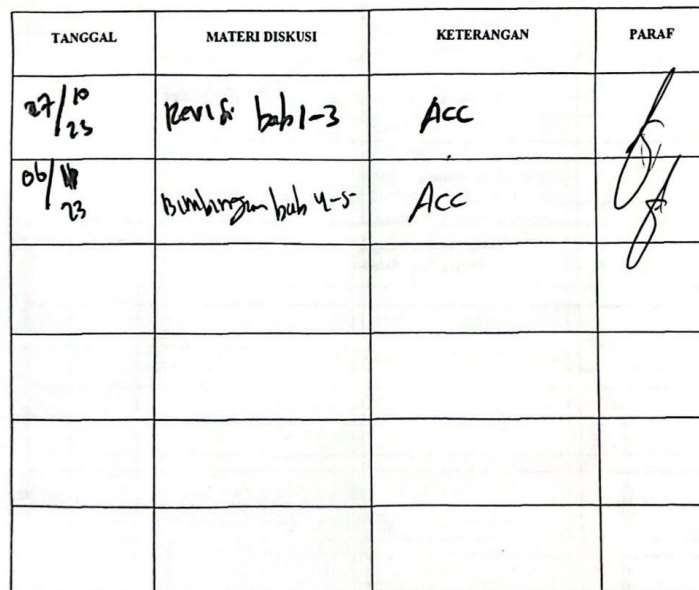 TANGGAL MATERI DISKUSI KETERANGAN PARAF
27/10/23 Revisi bab 1-3 Acc
06/11/23 Bimbingan bab 4-5 Acc